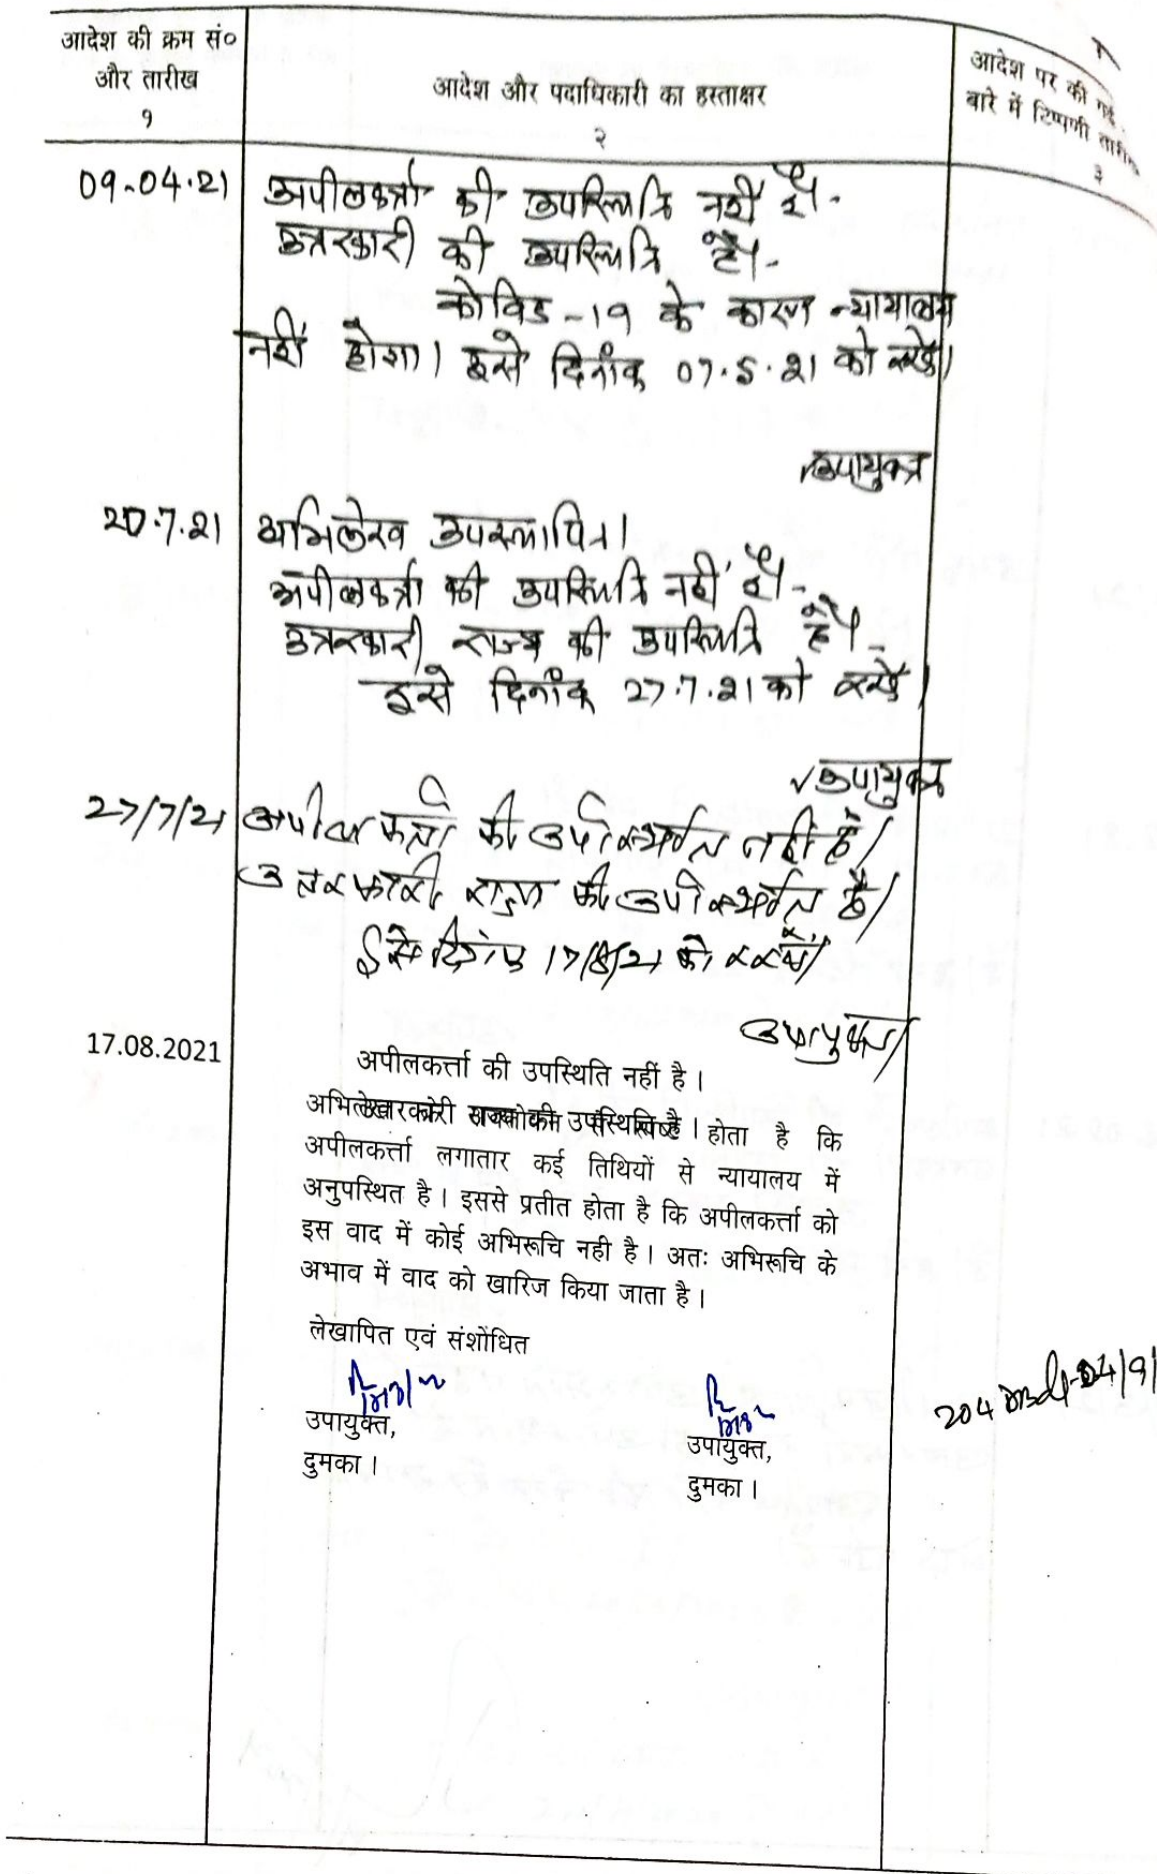 आदेश की क्रम सं०
और तारीख
१
आदेश और पदाधिकारी का हस्ताक्षर
२
आदेश पर की गई
बारे में टिप्पणी तारीख
३
09.04.21 अपीलकर्त्ता की उपस्थिति नहीं है।
उत्तरकारी की उपस्थिति है।
कोविड-19 के कारण न्यायालय
नहीं होगा। इसे दिनांक 07.5.21 को रखें।
उपायुक्त
20.7.21 अभिलेख उपस्थापित।
अपीलकर्त्ता की उपस्थिति नहीं है।
उत्तरकारी राज्य की उपस्थिति है।
इसे दिनांक 27.7.21 को रखें।
उपायुक्त
27/7/21 अपीलकर्ता की उपस्थिति नहीं है।
उत्तरकारी राज्य की उपस्थिति है।
इसे दिनांक 17/8/21 को रखें।
उपायुक्त
17.08.2021
अपीलकर्त्ता की उपस्थिति नहीं है।
उत्तरकारी राज्य की उपस्थिति है।
अभिलेख के अवलोकन से स्पष्ट होता है कि
अपीलकर्त्ता लगातार कई तिथियों से न्यायालय में
अनुपस्थित है। इससे प्रतीत होता है कि अपीलकर्त्ता को
इस वाद में कोई अभिरूचि नही है। अतः अभिरूचि के
अभाव में वाद को खारिज किया जाता है।
लेखापित एवं संशोधित
उपायुक्त,
दुमका।
उपायुक्त,
दुमका।
204